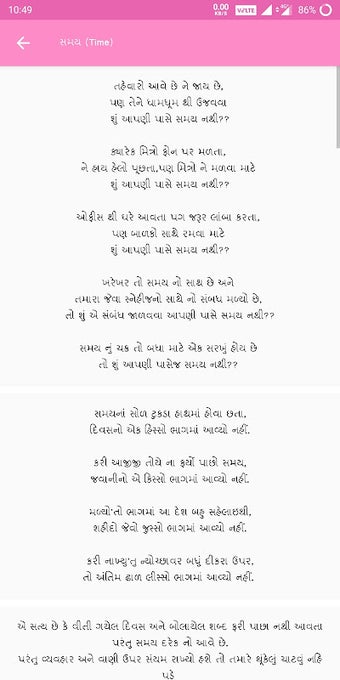 10:49
0.00
KB/S
VoLTE
4G
86%
સમય (Time)
તહેવારો આવે છે ને જાય છે,
પણ તેને ધામધૂમ થી ઉજવવા
શું આપણી પાસે સમય નથી??
ક્યારેક મિત્રો ફોન પર મળતા,
ને હાય હેલો પૂછતા,પણ મિત્રો ને મળવા માટે
શું આપણી પાસે સમય નથી??
ઓફીસ થી ઘરે આવતા પગ જરૂર લાંબા કરતા,
પણ બાળકો સાથે રમવા માટે
શું આપણી પાસે સમય નથી??
ખરેખર તો સમય નો સાથ છે અને
તમારા જેવા સ્નેહીજનો સાથે નો સંબધ મળ્યો છે,
તો શું એ સંબંધ જાળવવા આપણી પાસે સમય નથી??
સમય નું ચક્ર તો બધા માટે એક સરખું હોય છે
તો શું આપણી પાસેજ સમય નથી??
સમયનાં સોળ ટુકડા હાથમાં હોવા છતા,
દિવસનો એક હિસ્સો ભાગમાં આવ્યો નહીં.
કરી આજીજી તોયે ના ફર્યો પાછો સમય,
જવાનીનો એ કિસ્સો ભાગમાં આવ્યો નહીં.
મળ્યો'તો ભાગમાં આ દેશ બહુ સહેલાઇથી,
શહીદો જેવો જુસ્સો ભાગમાં આવ્યો નહીં.
કરી નાખ્યુ'તુ ન્યોચ્છાવર બધું દીકરા ઉપર,
તો અંતિમ ઢાળ લીસ્સો ભાગમાં આવ્યો નહીં.
એ સત્ય છે કે વીતી ગયેલ દિવસ અને બોલાયેલ શબ્દ ફરી પાછા નથી આવતા
પરંતુ સમય દરેક નો આવે છે.
પરંતુ વ્યવહાર અને વાણી ઉપર સંયમ રાખ્યો હશે તો તમારે થૂકેલું ચાટવું નહિ
પડે